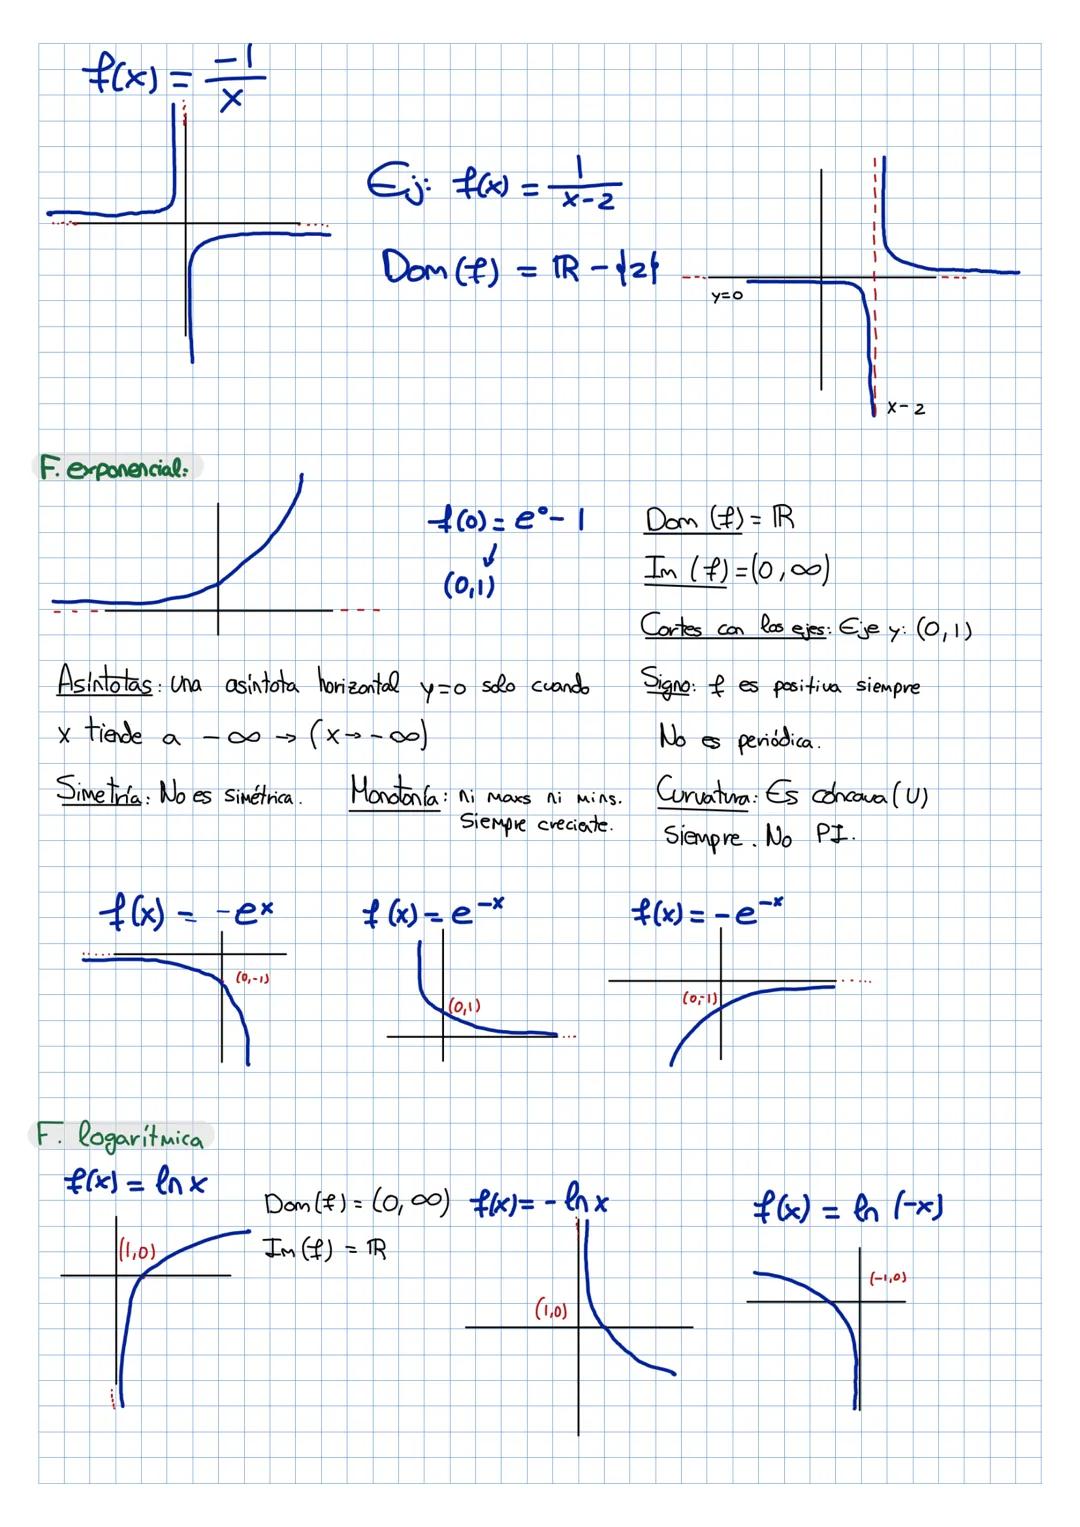 f(x) = -1/x
Ej: f(x) = 1/(x-2)
Dom (f) = ℝ - {2}
y=0
x-2
F. exponencial:
f(0) = e⁰ - 1
(0,1)
Dom (f) = ℝ
Im (f) = (0, ∞)
Cortes con los ejes: Eje y: (0,1)
Asíntotas: una asíntota horizontal y=0 solo cuando
x tiende a -∞ → (x→-∞)
Signo: f es positiva siempre
No es periódica.
Simetría: No es simétrica.
Monotonía: ni maxs ni mins.
Siempre creciente.
Curvatura: Es cóncava (U)
Siempre. No PI.
f(x) = -eˣ
(0,-1)
f(x) = e⁻ˣ
(0,1)
f(x) = -e⁻ˣ
(0,-1)
F. logarítmica
f(x) = ln x
(1,0)
Dom (f) = (0, ∞)
Im (f) = ℝ
f(x) = - ln x
(1,0)
f(x) = ln (-x)
(-1,0)